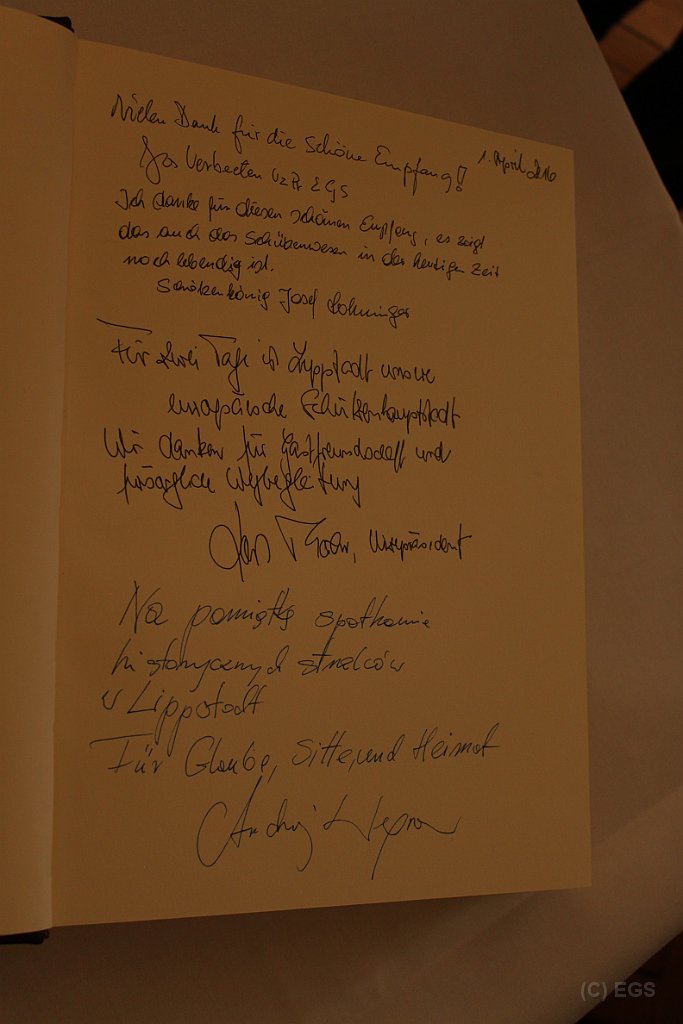 Vielen Dank für die Schöne Empfang!
1. April 2016
Jos Verbeeten VzPr EGS
Ich danke für diesen schönen Empfang, es zeigt
das auch das Schützenwesen in der heutigen Zeit
noch lebendig ist.
Schützenkönig Josef Lohninger
Für zwei Tage ist Lippstadt unsere
europäische Schützenhauptstadt
Wir danken für Gastfreundschaft und
Wegbegleitung
Vizepräsident
Na pamiątkę spotkania
historycznych strzelców
w Lippstadt
Für Glaube, Sitte, und Heimat
Andrzej
(C) EGS